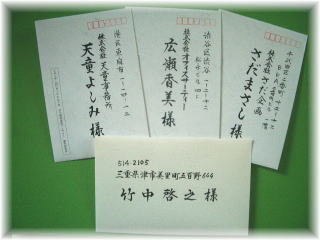 港区東麻布一-四-一二
株式会社 天童事務所
天童よしみ 様
渋谷区渋谷
株式会社オフィスサーティー
広瀬香美 様
千代田区二番町
株式会社さだ企画
さだまさし 様
514-2105
三重県津市美里町五百野
竹中啓之様